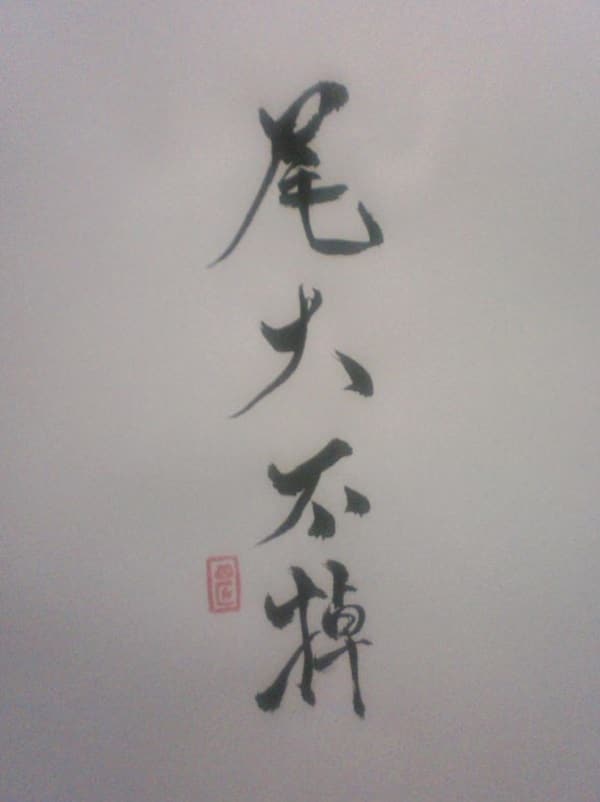 尾大不掉